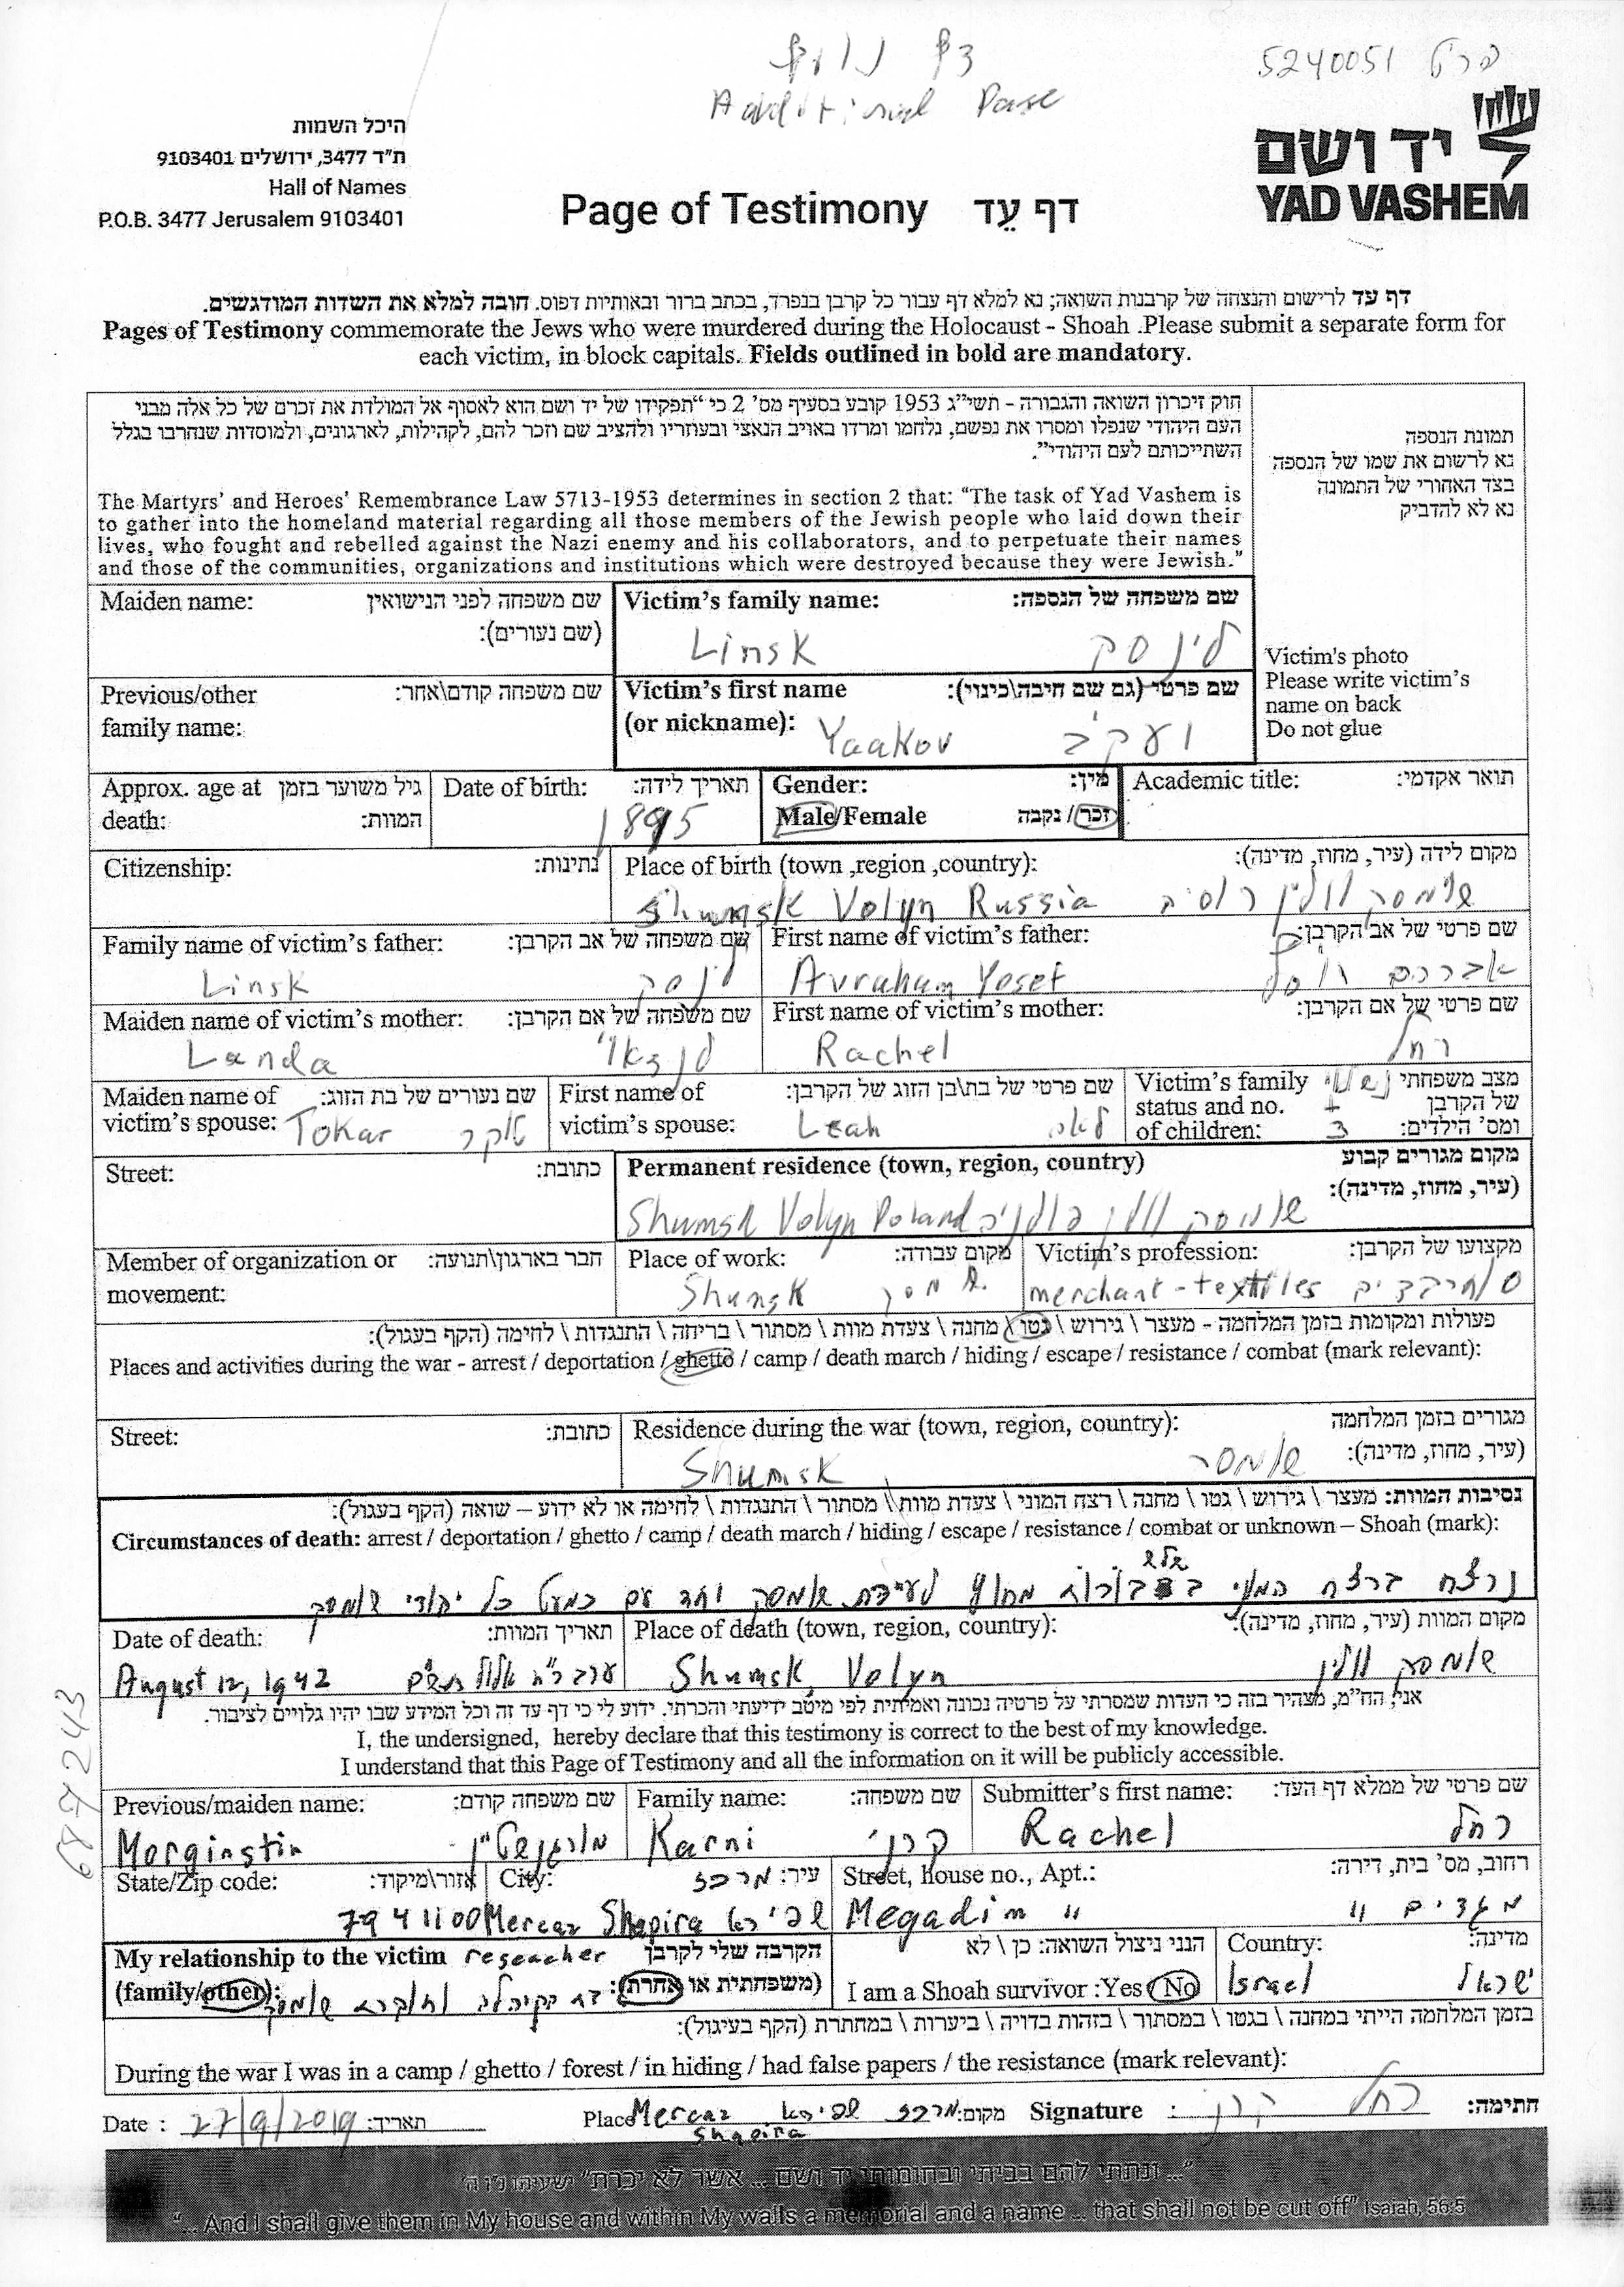 דף נוסף
Additional Page
5240051 פריט
היכל השמות
ת"ד 3477, ירושלים 9103401
Hall of Names
P.O.B. 3477 Jerusalem 9103401
Page of Testimony דף עֵד
יד ושם
YAD VASHEM
דף עד לרישום והנצחה של קרבנות השואה; נא למלא דף עבור כל קרבן בנפרד, בכתב ברור ובאותיות דפוס. חובה למלא את השדות המודגשים.
Pages of Testimony commemorate the Jews who were murdered during the Holocaust - Shoah .Please submit a separate form for
each victim, in block capitals. Fields outlined in bold are mandatory.
חוק זיכרון השואה והגבורה - תשי"ג 1953 קובע בסעיף מס' 2 כי "תפקידו של יד ושם הוא לאסוף אל המולדת את זכרם של כל אלה מבני
העם היהודי שנפלו ומסרו את נפשם, נלחמו ומרדו באויב הנאצי ובעוזריו ולהציב שם וזכר להם, לקהילות, לארגונים, ולמוסדות שנחרבו בגלל
השתייכותם לעם היהודי".
The Martyrs' and Heroes' Remembrance Law 5713-1953 determines in section 2 that: "The task of Yad Vashem is
to gather into the homeland material regarding all those members of the Jewish people who laid down their
lives, who fought and rebelled against the Nazi enemy and his collaborators, and to perpetuate their names
and those of the communities, organizations and institutions which were destroyed because they were Jewish."
תמונת הנספה
נא לרשום את שמו של הנספה
בצד האחורי של התמונה
נא לא להדביק
Victim's photo
Please write victim's
name on back
Do not glue
Maiden name: שם משפחה לפני הנישואין
(שם נעורים):
Victim's family name: שם משפחה של הנספה:
Linsk לינסק
Previous/other שם משפחה קודם\אחר:
family name:
Victim's first name שם פרטי (גם שם חיבה\כינוי):
(or nickname): Yaakov יעקב
Approx. age at גיל משוער בזמן
death: המוות:
Date of birth: תאריך לידה:
1895
Gender: מין:
Male/Female זכר / נקבה
Academic title: תואר אקדמי:
Citizenship: נתינות:
Place of birth (town ,region ,country): מקום לידה (עיר, מחוז, מדינה):
Shumsk Volyn Russia שומסק וולין רוסיה
Family name of victim's father: שם משפחה של אב הקרבן:
Linsk לינסק
First name of victim's father: שם פרטי של אב הקרבן:
Avraham Yosef אברהם יוסף
Maiden name of victim's mother: שם משפחה של אם הקרבן:
Landa
First name of victim's mother: שם פרטי של אם הקרבן:
Rachel רחל
Maiden name of שם נעורים של בת הזוג:
victim's spouse: Tokar טוקר
First name of שם פרטי של בת\בן הזוג של הקרבן:
victim's spouse: Leah לאה
Victim's family מצב משפחתי נשוי
status and no. של הקרבן +
of children: ומס' הילדים: 3
Street: כתובת:
Permanent residence (town, region, country) מקום מגורים קבוע
(עיר, מחוז, מדינה):
Shumsk Volyn Poland שומסק וולין פולניה
Member of organization or חבר בארגון\תנועה:
movement:
Place of work: מקום עבודה:
Shumsk שומסק
Victim's profession: מקצועו של הקרבן:
merchant-textiles סוחר בדים
פעולות ומקומות בזמן המלחמה - מעצר \ גירוש \ גטו \ מחנה \ צעדת מוות \ מסתור \ בריחה \ התנגדות \ לחימה (הקף בעגול):
Places and activities during the war - arrest / deportation / ghetto / camp / death march / hiding / escape / resistance / combat (mark relevant):
Street: כתובת:
Residence during the war (town, region, country): מגורים בזמן המלחמה
(עיר, מחוז, מדינה):
Shumsk שומסק
נסיבות המוות: מעצר \ גירוש \ גטו \ מחנה \ רצח המוני \ צעדת מוות \ מסתור \ התנגדות \ לחימה או לא ידוע – שואה (הקף בעגול):
Circumstances of death: arrest / deportation / ghetto / camp / death march / hiding / escape / resistance / combat or unknown – Shoah (mark):
שלש
נרצח ברצח המוני בבורות מחוץ לעיירת שומסק יחד עם כמעט כל יהודי שומסק
Date of death: תאריך המוות:
August 12, 1942 ערב ר"ח אלול תש"ב
Place of death (town, region, country): מקום המוות (עיר, מחוז, מדינה):
Shumsk, Volyn שומסק וולין
אני, הח"מ, מצהיר בזה כי העדות שמסרתי על פרטיה נכונה ואמיתית לפי מיטב ידיעתי והכרתי. ידוע לי כי דף עד זה וכל המידע שבו יהיו גלויים לציבור.
I, the undersigned, hereby declare that this testimony is correct to the best of my knowledge.
I understand that this Page of Testimony and all the information on it will be publicly accessible.
687243
Previous/maiden name: שם משפחה קודם:
Morginstin מורגנשטיין
Family name: שם משפחה:
Karni קרני
Submitter's first name: שם פרטי של ממלא דף העד:
Rachel רחל
State/Zip code: אזור\מיקוד:
7941100
City: עיר: מרכז
Mercaz Shapira שפירא
Street, house no., Apt.: רחוב, מס' בית, דירה:
Megadim 11 מגדים 11
My relationship to the victim reseacher הקרבה שלי לקרבן
(family/other): (משפחתית או אחרת):
I am a Shoah survivor :Yes / No הנני ניצול השואה: כן \ לא
Country: מדינה:
Israel ישראל
בזמן המלחמה הייתי במחנה \ בגטו \ במסתור \ בזהות בדויה \ ביערות \ במחתרת (הקף בעיגול):
During the war I was in a camp / ghetto / forest / in hiding / had false papers / the resistance (mark relevant):
Date : 27/9/2019 תאריך:
Place Mercaz Shapira מרכז שפירא מקום:
Signature : רחל קרני חתימה:
"... ונתתי להם בביתי ובחומותי יד ושם ... אשר לא יכרת" ישעיהו נ"ו ה'
"... And I shall give them in My house and within My walls a memorial and a name ... that shall not be cut off" Isaiah, 56:5